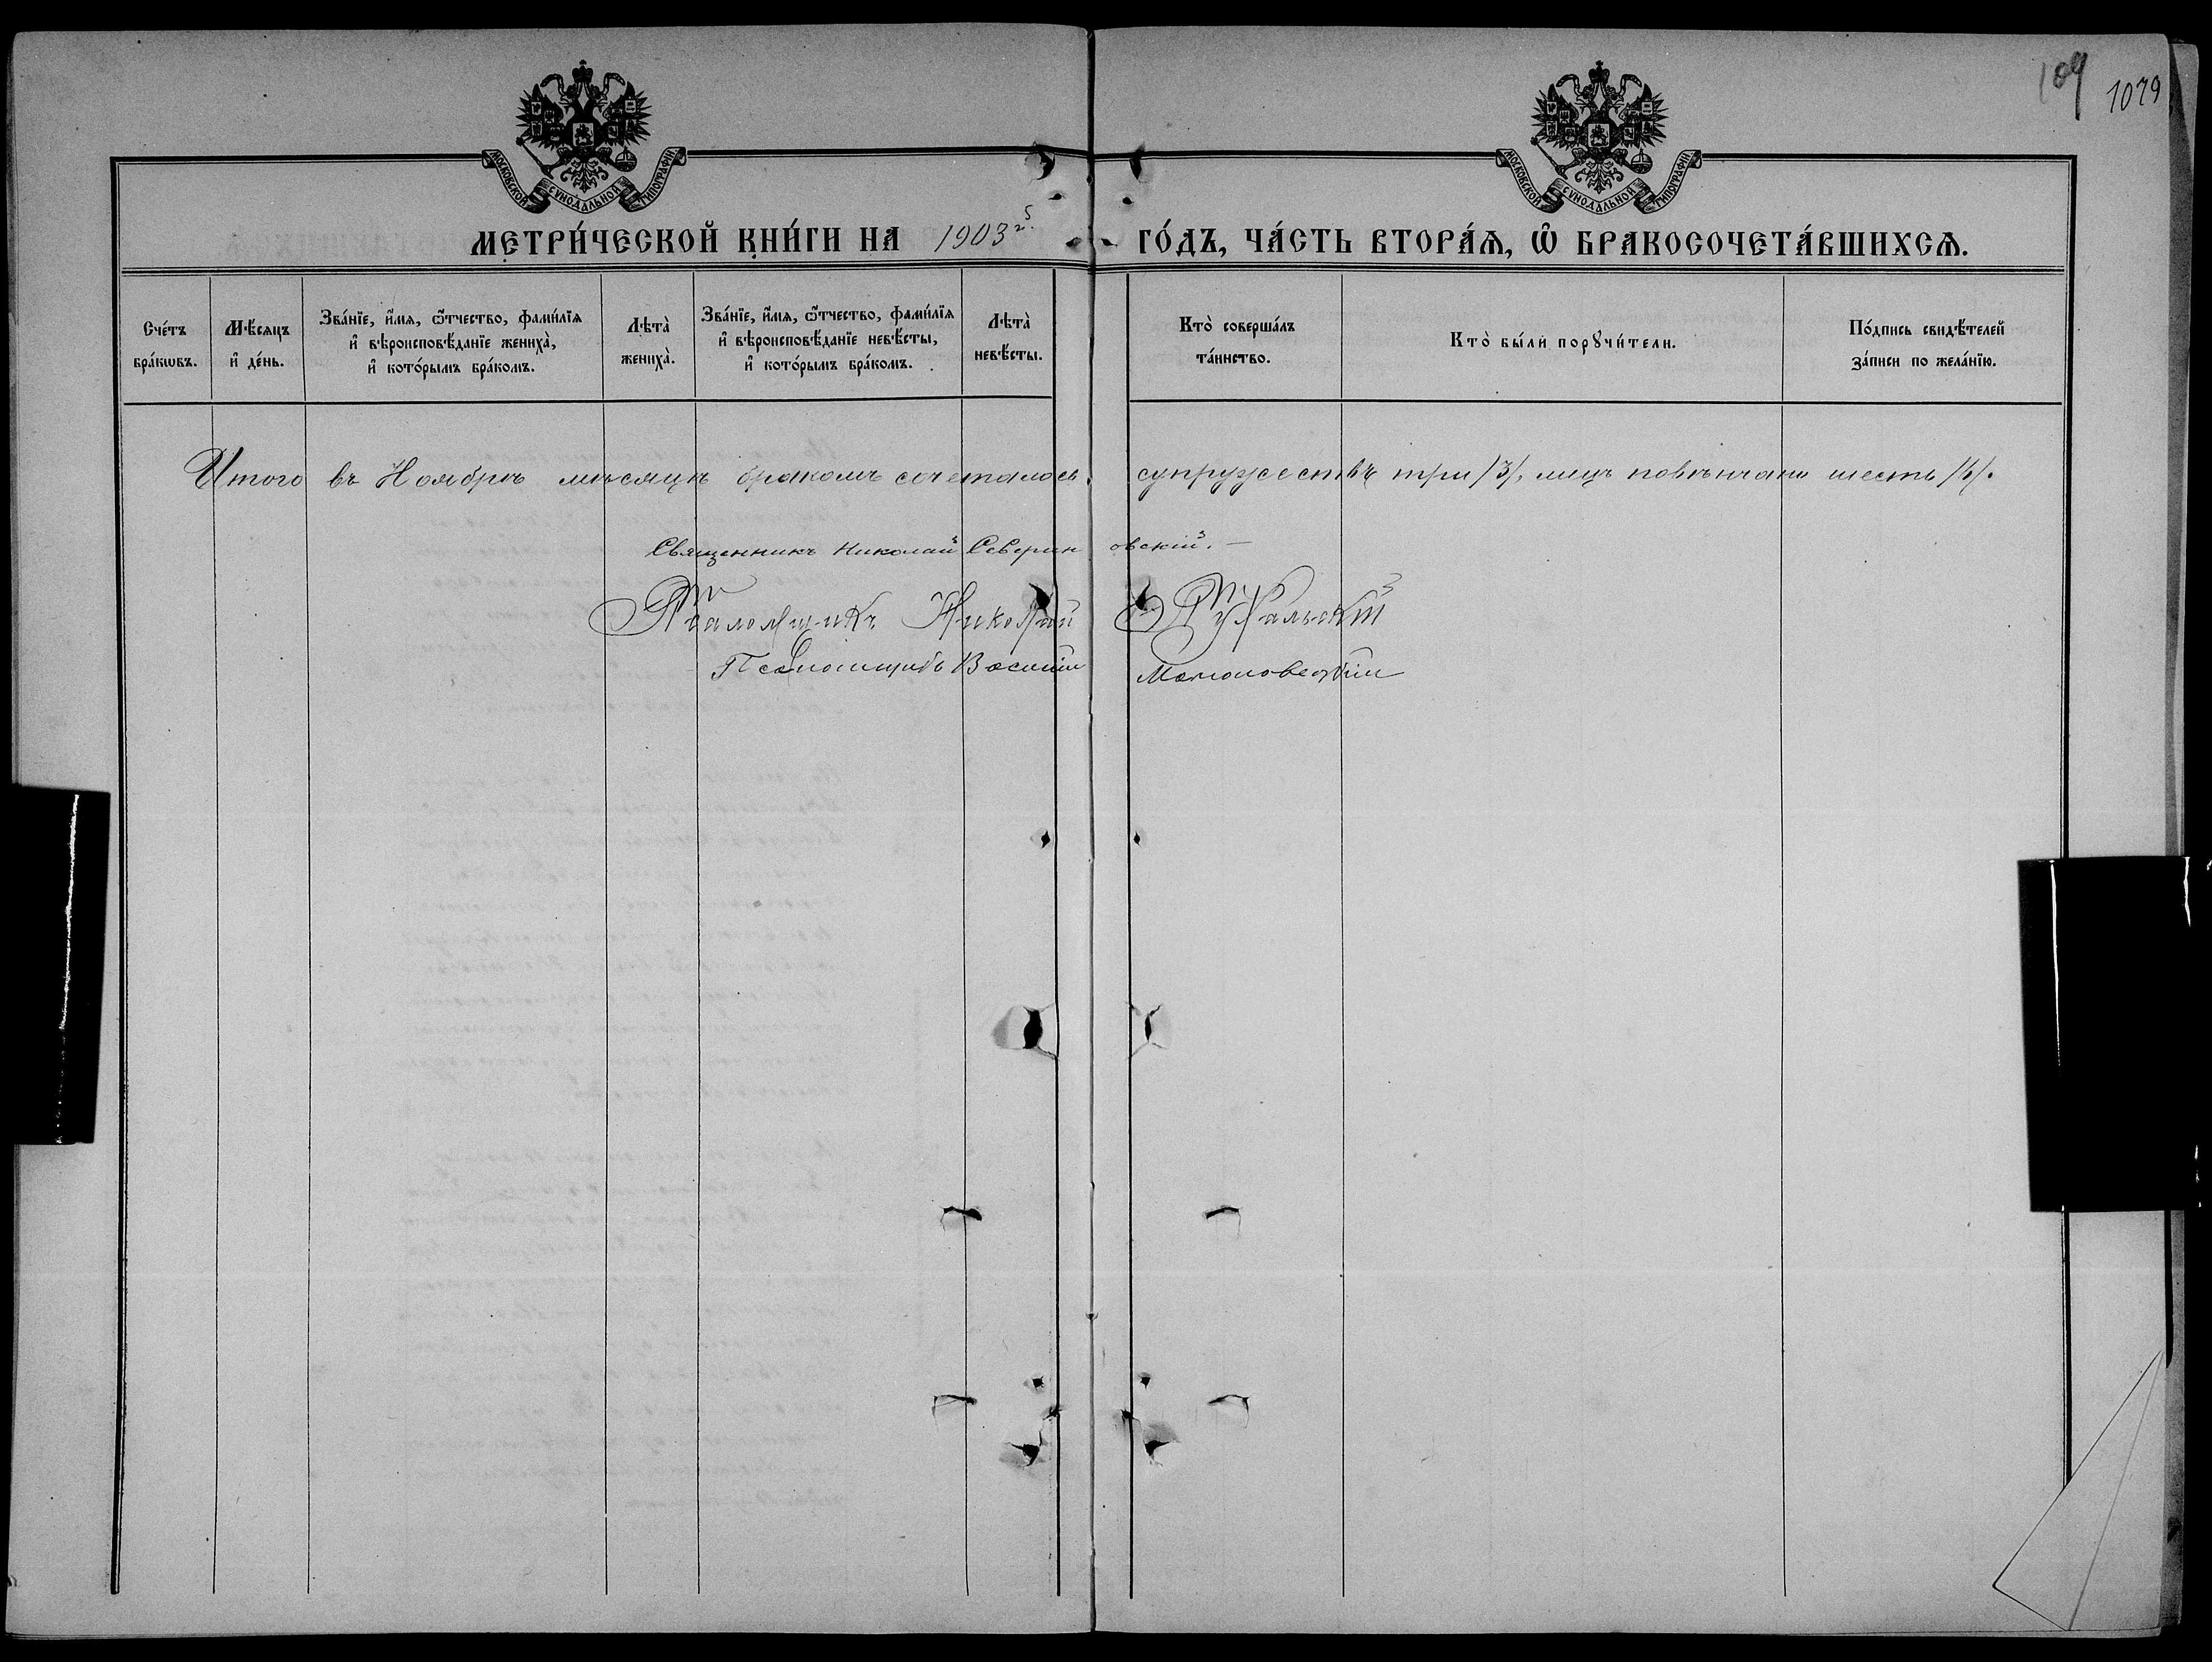 109 1079
МОСКОВСКОЙ СѴНОДАЛЬНОЙ ТИПОГРАФІИ
МОСКОВСКОЙ СѴНОДАЛЬНОЙ ТИПОГРАФІИ
МЕТРИ́ЧЕСКОЙ КНИ́ГИ НА 1903 г. ГО́ДЪ, ЧА́СТЬ ВТОРА́Ѧ, Ѽ БРАКОСОЧЕТА́ВШИХСѦ.
Сче́тъ бра́кѡвъ.
Мѣ́сѧцъ и҆ де́нь.
Зва́нїе, и҆́мѧ, ѻ҆́тчество, фами́лїѧ и҆ вѣроисповѣ́данїе жениха̀, и҆ кото́рымъ бра́комъ.
Лѣта̀ жениха̀.
Зва́нїе, и҆́мѧ, ѻ҆́тчество, фами́лїѧ и҆ вѣроисповѣ́данїе невѣ́сты, и҆ кото́рымъ бра́комъ.
Лѣта̀ невѣ́сты.
Кто̀ соверша́лъ та́инство.
Кто̀ бы́ли порꙋчи́тели.
По́дпись свидѣ́телей за́писи по жела́нїю.
Итого въ Ноябрѣ мѣсяцѣ бракомъ сочеталось супружествъ три /3/, лицъ повѣнчано шесть /6/.
Священникъ Николай Севериновскій. —
Псаломщикъ Николай
Псаломщикъ Василій